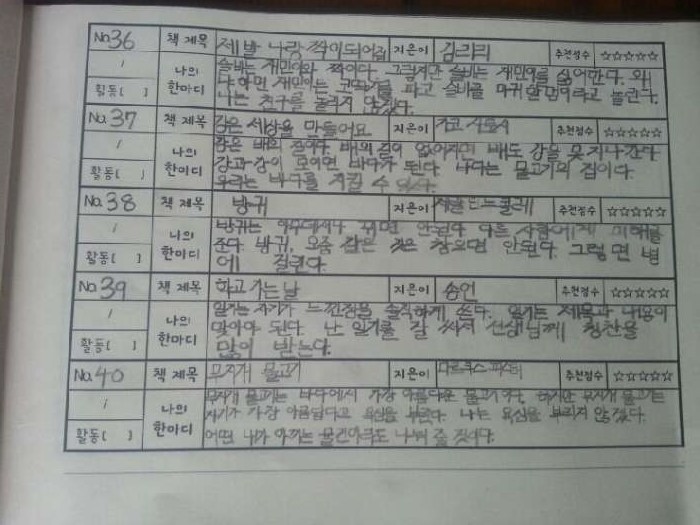 No.36 책 제목 제발 나랑 짝이되어줘 지은이 김리리 추천점수 ☆☆☆☆☆
/ 나의 한마디 슬비는 재민이와 짝이다. 그렇지만 슬비는 재민이를 싫어한다. 왜
활동[ ] 냐하면 재민이는 코딱지를 파고 슬비를 마귀할멈이라고 놀린다.
나는 친구를 놀리지 않겠다.
No.37 책 제목 강은 세상을 만들어요 지은이 추천점수 ☆☆☆☆☆
/ 나의 한마디 강은 배의 길이다. 배의 길이 없어지면 배도 강을 못 지나간다
활동[ ] 강과 강이 모이면 바다가 된다. 바다는 물고기의 집이다.
우리는 바다를 지킬 수 있다.
No.38 책 제목 방귀 지은이 추천점수 ☆☆☆☆☆
/ 나의 한마디 방귀는 아무데서나 뀌면 안된다 다른 사람에게 피해를
활동[ ] 준다. 방귀, 오줌 같은 것은 참으면 안된다. 그럼면 병
에 걸린다.
No.39 책 제목 하고 가는 날 지은이 송언 추천점수 ☆☆☆☆☆
/ 나의 한마디 일기는 자기가 느낀점을 솔직하게 쓴다. 일기는 제목과 내용이
활동[ ] 맞아야 된다. 난 일기를 잘 써서 선생님께 칭찬을
많이 받는다.
No.40 책 제목 무지개 물고기 지은이 마르쿠스 피스터 추천점수 ☆☆☆☆☆
/ 나의 한마디 무지개 물고기는 바다에서 가장 아름다운 물고기 하지만 무지개 물고기는
활동[ ] 자기가 가장 아름답다고 욕심을 부린다. 나는 욕심을 부리지 않겠다.
어떤 내가 아끼는 물건이라도 나눠 줄 것이다.